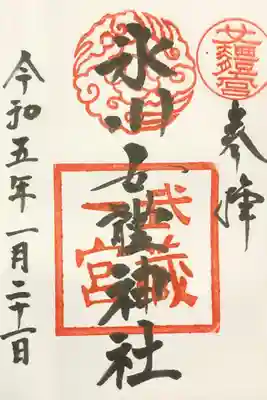 奉拝
氷川女體神社
武蔵
一宮
令和五年一月二十一日